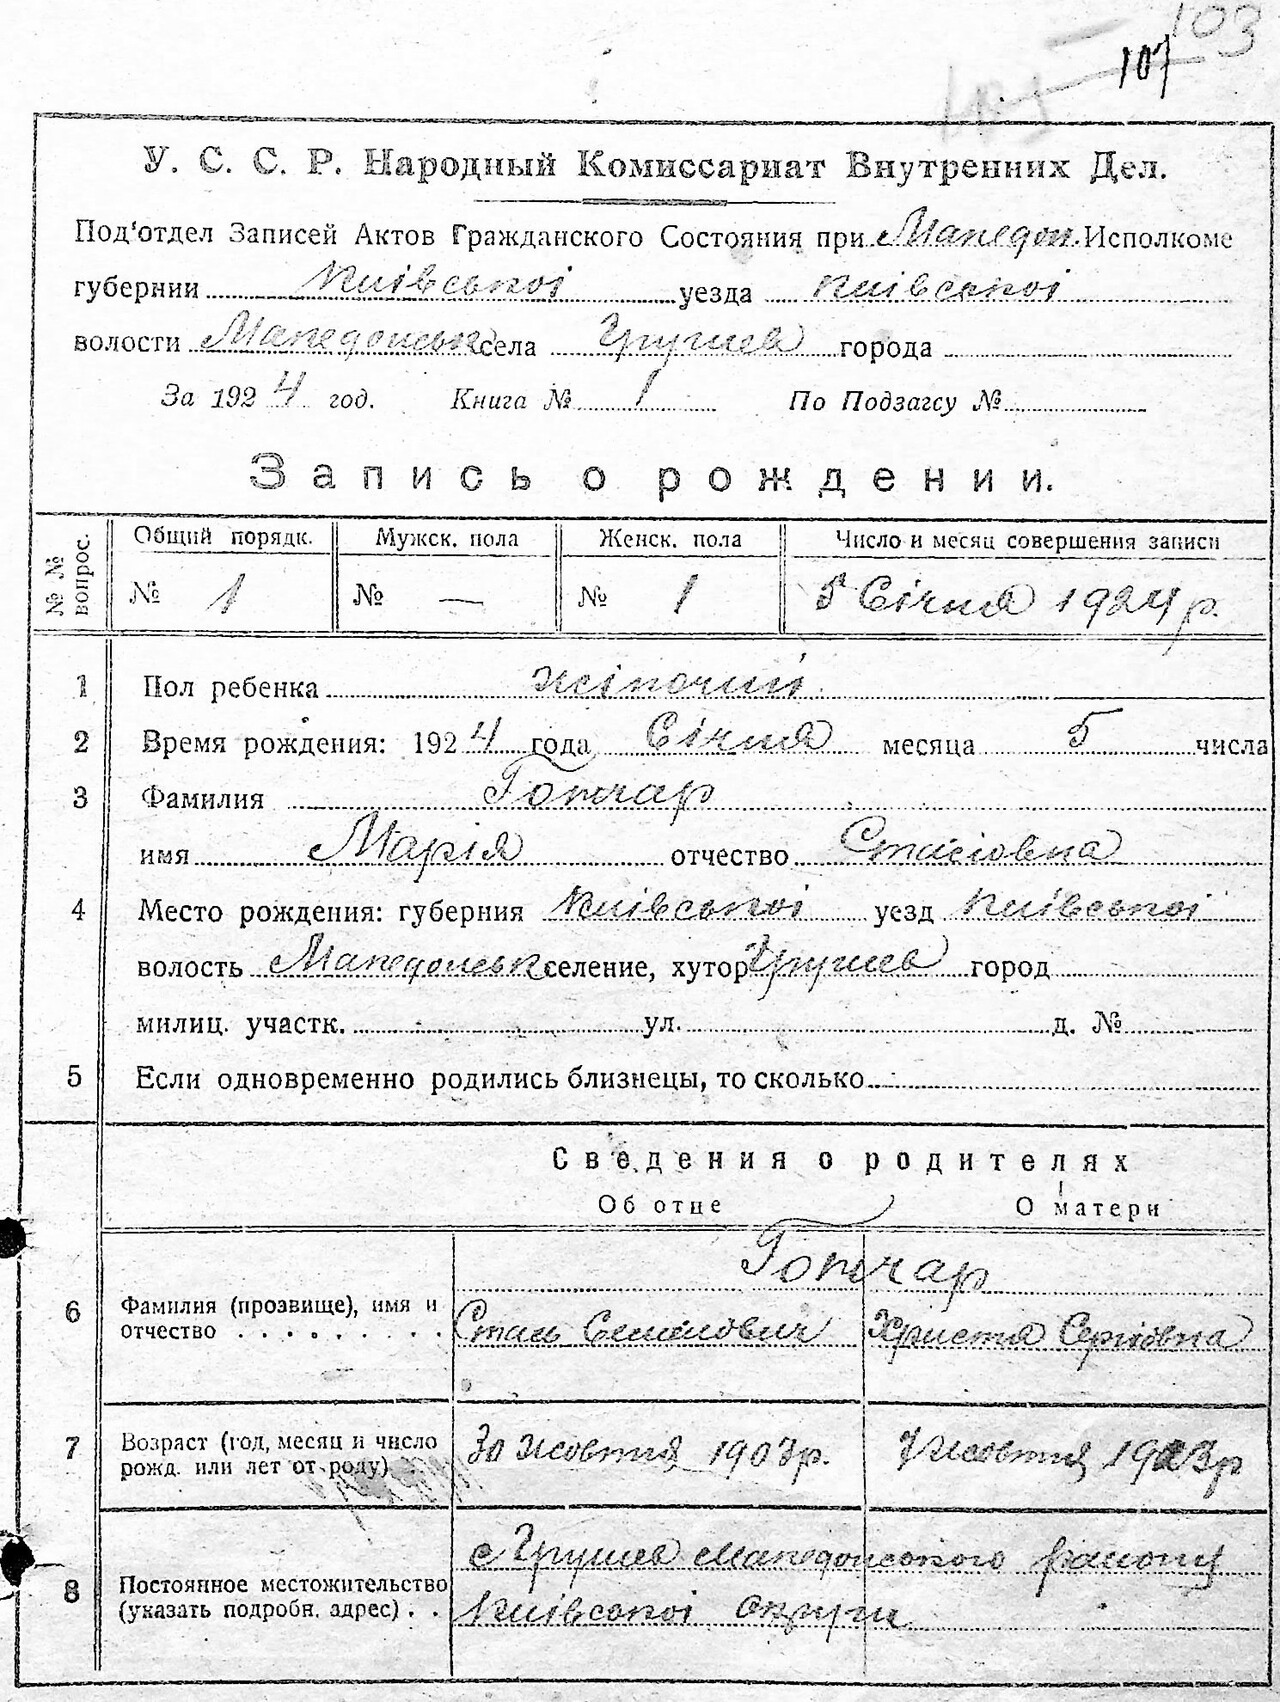 103
107
У. С. С. Р. Народный Комиссариат Внутренних Дел.
Под'отдел Записей Актов Гражданского Состояния при Македон. Исполкоме
губернии Київської уезда Київської
волости Македонськ села Грушев города
За 1924 год. Книга № 1 По Подзагсу №
Запись о рождении.
№ № вопрос. Общий порядк. Мужск. пола Женск. пола Число и месяц совершения записи
№ 1 № — № 1 5 Січня 1924 р.
1 Пол ребенка жіночий
2 Время рождения: 1924 года Січня месяца 5 числа
3 Фамилия Гончар
имя Марія отчество Стасіовна
4 Место рождения: губерния Київської уезд Київської
волость Македонськ селение, хутор Грушев город
милиц. участк. ул. д. №
5 Если одновременно родились близнецы, то сколько
Сведения о родителях
Об отце О матери
Гончар
6 Фамилия (прозвище), имя и
отчество Стась Семенович Христя Сергіовна
7 Возраст (год, месяц и число
рожд. или лет от роду) 30 жовтня 1903 р. 7 жовтня 1903 р
с Грушев Македонського району
8 Постоянное местожительство
(указать подробн. адрес) . . Київської округи